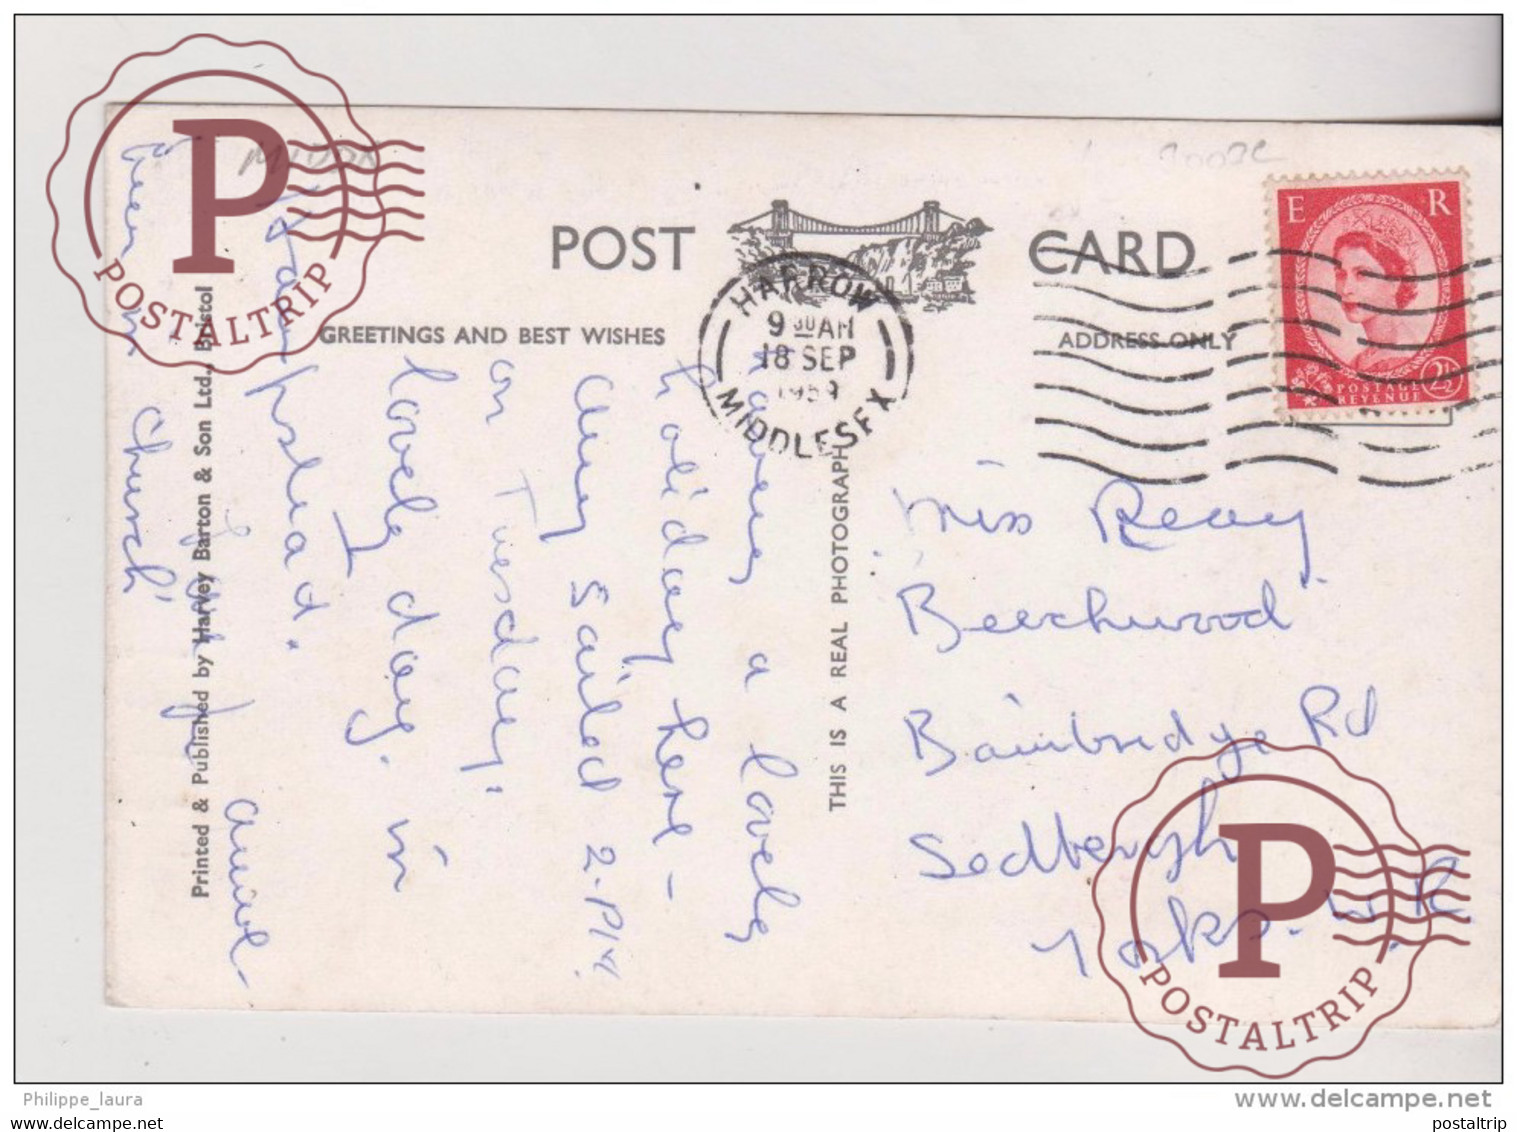 MIDDX
POST CARD
GREETINGS AND BEST WISHES
ADDRESS ONLY
HARROW
9 30 AM
18 SEP
1959
MIDDLESEX
E R
POSTAGE
REVENUE
2½
having a lovely
holiday here -
Amy Sailed 2. P.M.
on Tuesday,
lovely day. in
Hampstead.
arrival
Church
Miss Reay
Beechwood
Bainbridge Rd
Sedbergh
Yorks. W.R.
THIS IS A REAL PHOTOGRAPH
Printed & Published by Harvey Barton & Son Ltd., Bristol
P
POSTALTRIP
P
POSTALTRIP
Philippe_laura
www.delcampe.net
www.delcampe.net
postaltrip